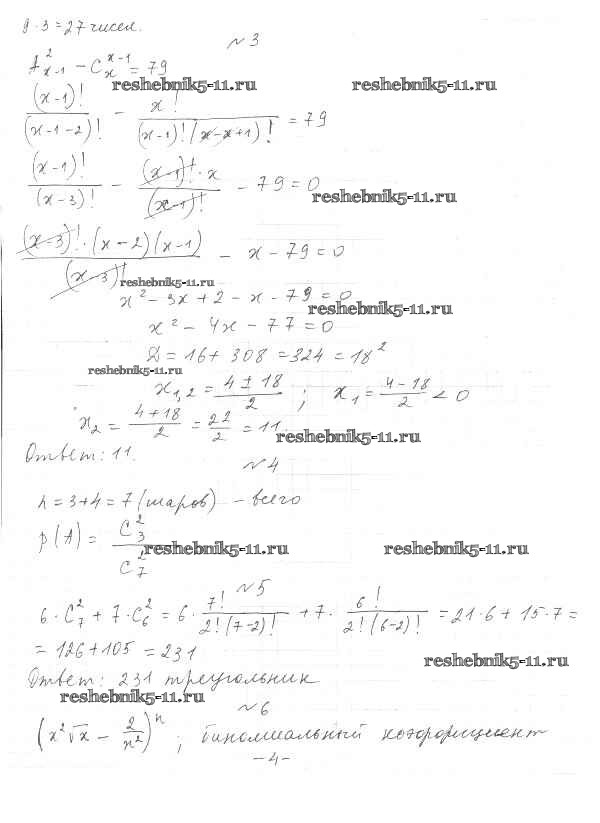 9·3=27 чисел.
№3
A²ₓ₋₁ − Cₓˣ⁻¹ = 79
reshebnik5-11.ru reshebnik5-11.ru
(x-1)! / (x-1-2)! − x! / (x-1)!(x-x+1)! = 79
(x-1)! / (x-3)! − (x-1)!·x / (x-1)! − 79 = 0
reshebnik5-11.ru
(x-3)!·(x-2)(x-1) / (x-3)! − x − 79 = 0
reshebnik5-11.ru
x² − 3x + 2 − x − 79 = 0
reshebnik5-11.ru
x² − 4x − 77 = 0
D = 16 + 308 = 324 = 18²
reshebnik5-11.ru
x₁,₂ = (4 ± 18) / 2 ; x₁ = (4 − 18) / 2 < 0
x₂ = (4+18) / 2 = 22 / 2 = 11.
reshebnik5-11.ru
Ответ: 11.
№4
n = 3+4 = 7 (шаров) – всего
p(A) = C₃² / C₇²
reshebnik5-11.ru reshebnik5-11.ru
№5
6·C₇² + 7·C₆² = 6· 7! / 2!(7-2)! + 7· 6! / 2!(6-2)! = 21·6 + 15·7 =
= 126 + 105 = 231
reshebnik5-11.ru
Ответ: 231 треугольник
reshebnik5-11.ru
№6
(x²√x − 2/x²)ⁿ ; биномиальный коэффициент
-4-